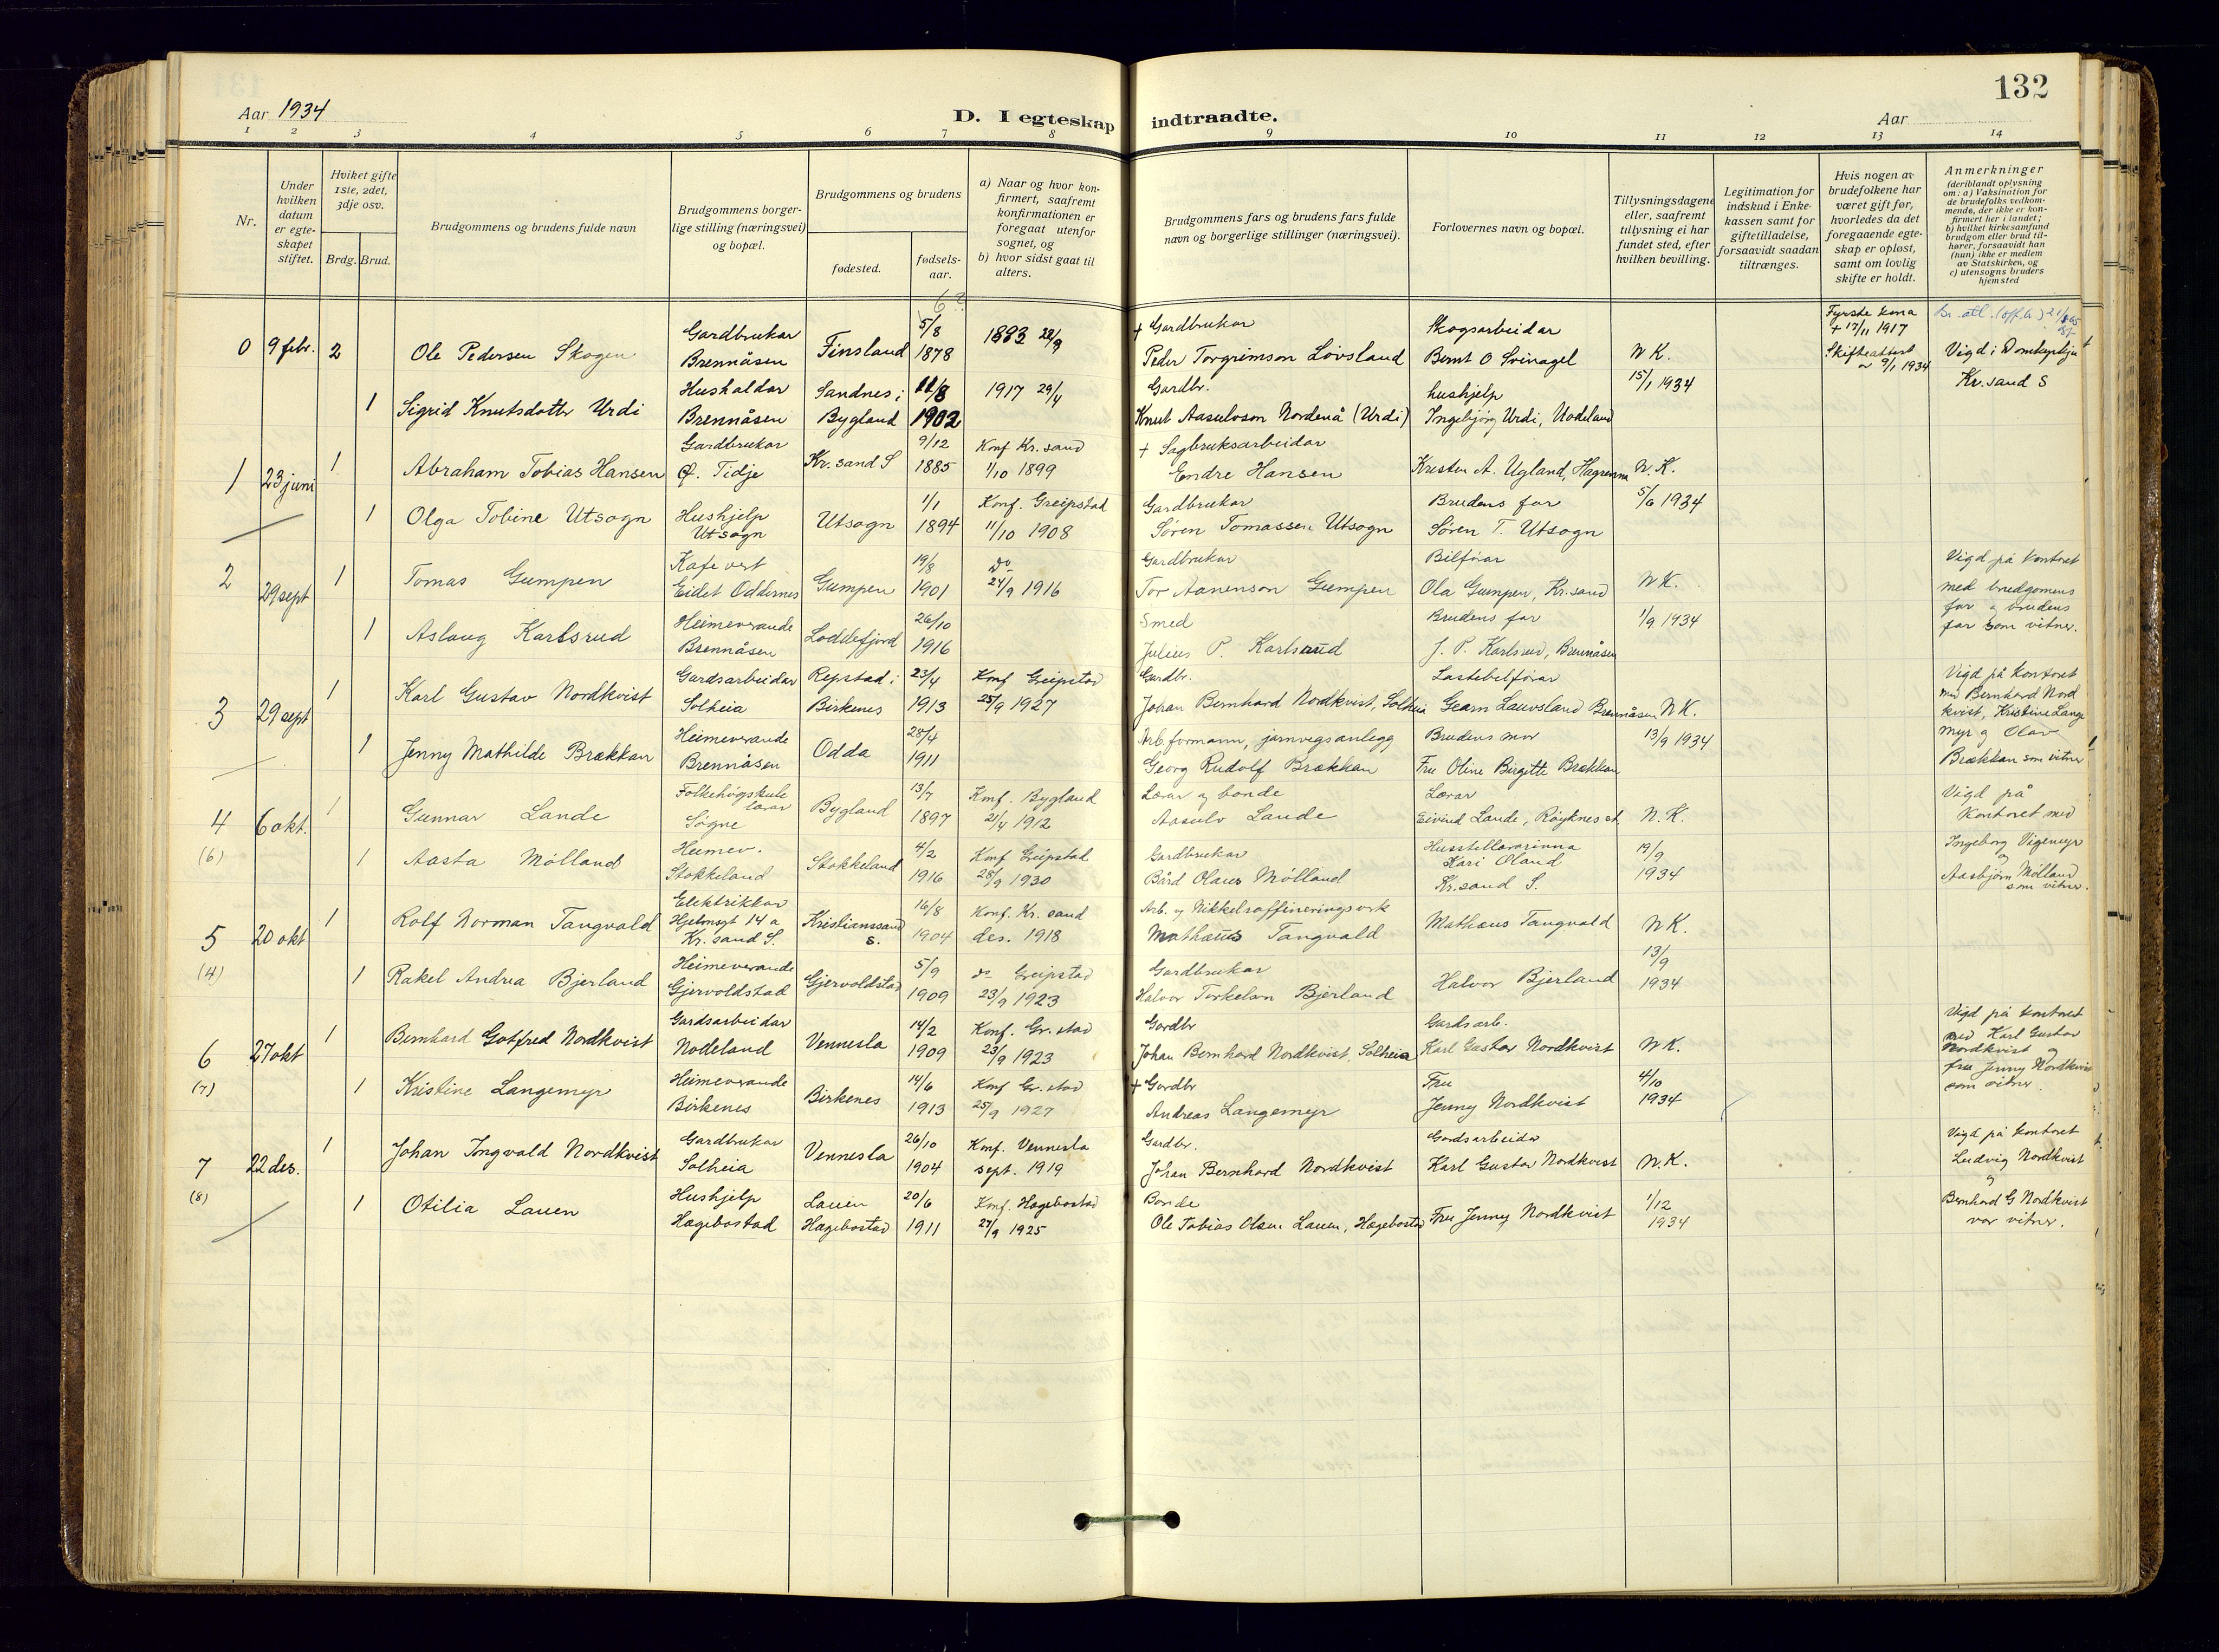 132
Aar 1934
D. I egteskap indtraadte.
Aar
1 2 3 4 5 6 7 8 9 10 11 12 13 14
Nr.
Under hvilken datum er egteskapet stiftet.
Hviket gifte 1ste, 2det, 3dje osv.
Brdg. Brud.
Brudgommens og brudens fulde navn
Brudgommens borgerlige stilling (næringsvei) og bopæl.
Brudgommens og brudens
fødested.
fødselsaar.
a) Naar og hvor konfirmert, saafremt konfirmationen er foregaat utenfor sognet, og
b) hvor sidst gaat til alters.
Brudgommens fars og brudens fars fulde navn og borgerlige stillinger (næringsvei).
Forlovernes navn og bopæl.
Tillysningsdagene eller, saafremt tillysning ei har fundet sted, efter hvilken bevilling.
Legitimation for indskud i Enkekassen samt for giftetilladelse, forsaavidt saadan tiltrænges.
Hvis nogen av brudefolkene har været gift før, hvorledes da det foregaaende egteskap er opløst, samt om lovlig skifte er holdt.
Anmerkninger
(deriblandt oplysning om: a) Vaksination for de brudefolks vedkommende, der ikke er konfirmert her i landet; b) hvilket kirkesamfund brudgom eller brud tilhører, forsaavidt han (hun) ikke er medlem av Statskirken, og c) utensogns bruders hjemsted
0 9 febr. 2 Ole Pedersen Skogen Gardbrukar Brennåsen Finsland 5/8 1878 1893 28/9 + Gardbrukar Peder Torgrimson Lövsland Skogsarbeidar Bernt O Svinagel N K. 15/1 1934 Fyrste kona + 17/11 1917 Skifteattest 9/1 1934 Vigd i Domkyrkja Kr. sand S
1 Sigrid Knutsdotter Urdi Hushaldar Brennåsen Sandnes i Bygland 11/8 1902 1917 29/4 Gardbr. Knut Aasulvson Nordenå (Urdi) hushjelp Ingebjørg Urdi, Nodeland
1 23 juni 1 Abraham Tobias Hansen Gardbrukar Ø. Tidje Kr. sand S 9/12 1885 Konf Kr. sand 1/10 1899 + Sagbruksarbeidar Endre Hansen Kristen A. Ugland, N. K. 5/6 1934
1 Olga Tobine Utsogn Hushjelp Utsogn Utsogn 1/1 1894 Konf. Greipstad 11/10 1908 Gardbrukar Søren Tomassen Utsogn Brudens far Søren T. Utsogn
2 29 sept 1 Tomas Gumpen Kafevert Eidet Oddernes Gumpen 19/8 1901 do 24/9 1916 Gardbrukar Tor Aanenson Gumpen Bilförar Ola Gumpen, Kr. sand N K. 1/9 1934 Vigd på kontoret med brudgomens far og brudens far som vitner.
1 Aslaug Karlsrud Heimeverande Brennåsen Loddefjord 26/10 1916 Smed Julius P. Karlsrud Brudens far J. P. Karlsrud, Brennåsen
3 29 sept 1 Karl Gustav Nordkvist Gardsarbeidar Solheia Repstad i Birkenes 23/4 1913 Konf Greipstad 25/9 1927 Gardbr. Johan Bernhard Nordkvist, Solheia Lastebilförar Gearn Lauvsland Brennåsen N K. 13/9 1934 Vigd på kontoret med Bernhard Nordkvist, Kristine Langemyr og Olav Brækkan som vitner
1 Jenny Mathilde Brækkan Heimeverande Brennåsen Odda 28/4 1911 Arb.formann, jarnvegsanlegg Georg Rudolf Brækkan Brudens mor Fru Oline Birgitte Brækkan
4 6 okt. 1 Gunnar Lande Folkehögskulelærar Søgne Bygland 13/7 1897 Konf. Bygland 21/4 1912 Lærar og bonde Aasulv Lande Lærar Eivind Lande, Röyknes st. N. K. 19/9 1934 Vigd på kontoret med Ingeborg Vigemyr og Aasbjørn Mølland som vitner.
(6) 1 Aasta Mølland Heimev. Stokkeland Stokkeland 4/2 1916 Konf Greipstad 28/9 1930 Gardbrukar Bård Olaus Mølland Husstellærarinna Kari Öland Kr. sand S.
5 20 okt 1 Rolf Norman Tangvald Elektrikkar Hjelmsgt 14 a Kr. sand S. Kristianssand S. 16/8 1904 Konf. Kr. sand des. 1918 Arb. v. Nikkelraffineringsverk Mathæus Tangvald Mathæus Tangvald N K. 13/9 1934
(4) 1 Rakel Andrea Bjerland Heimeverande Gjervoldstad Gjervoldstad 5/9 1909 do Greipstad 23/9 1923 Gardbrukar Halvor Torkelson Bjerland Halvor Bjerland
6 27 okt 1 Bernhard Gotfred Nordkvist Gardsarbeidar Nodeland Vennesla 14/2 1909 Konf. Gr. stad 23/9 1923 Gardbr Johan Bernhard Nordkvist, Solheia Gardsarb. Karl Gustav Nordkvist N K. 4/10 1934 Vigd på kontoret med Karl Gustav Nordkvist og fru Jenny Nordkvist som vitner.
(7) 1 Kristine Langemyr Heimeverande Birkenes Birkenes 14/6 1913 Konf Gr. stad 25/9 1927 + Gardbr Andreas Langemyr Fru Jenny Nordkvist
7 22 des. 1 Johan Ingvald Nordkvist Gardbrukar Solheia Vennesla 26/10 1904 Konf. Vennesla sept. 1919 Gardbr. Johan Bernhard Nordkvist Gardsarbeidar Karl Gustav Nordkvist N. K. 1/12 1934 Vigd på kontoret Ludvig Nordkvist og Bernhard G Nordkvist var vitner.
(8) 1 Otilia Lauen Hushjelp Hægebostad Lauen Hægebostad 20/6 1911 Konf. Hægebostad 27/9 1925 Bonde Ole Tobias Olsen Lauen, Hægebostad Fru Jenny Nordkvist